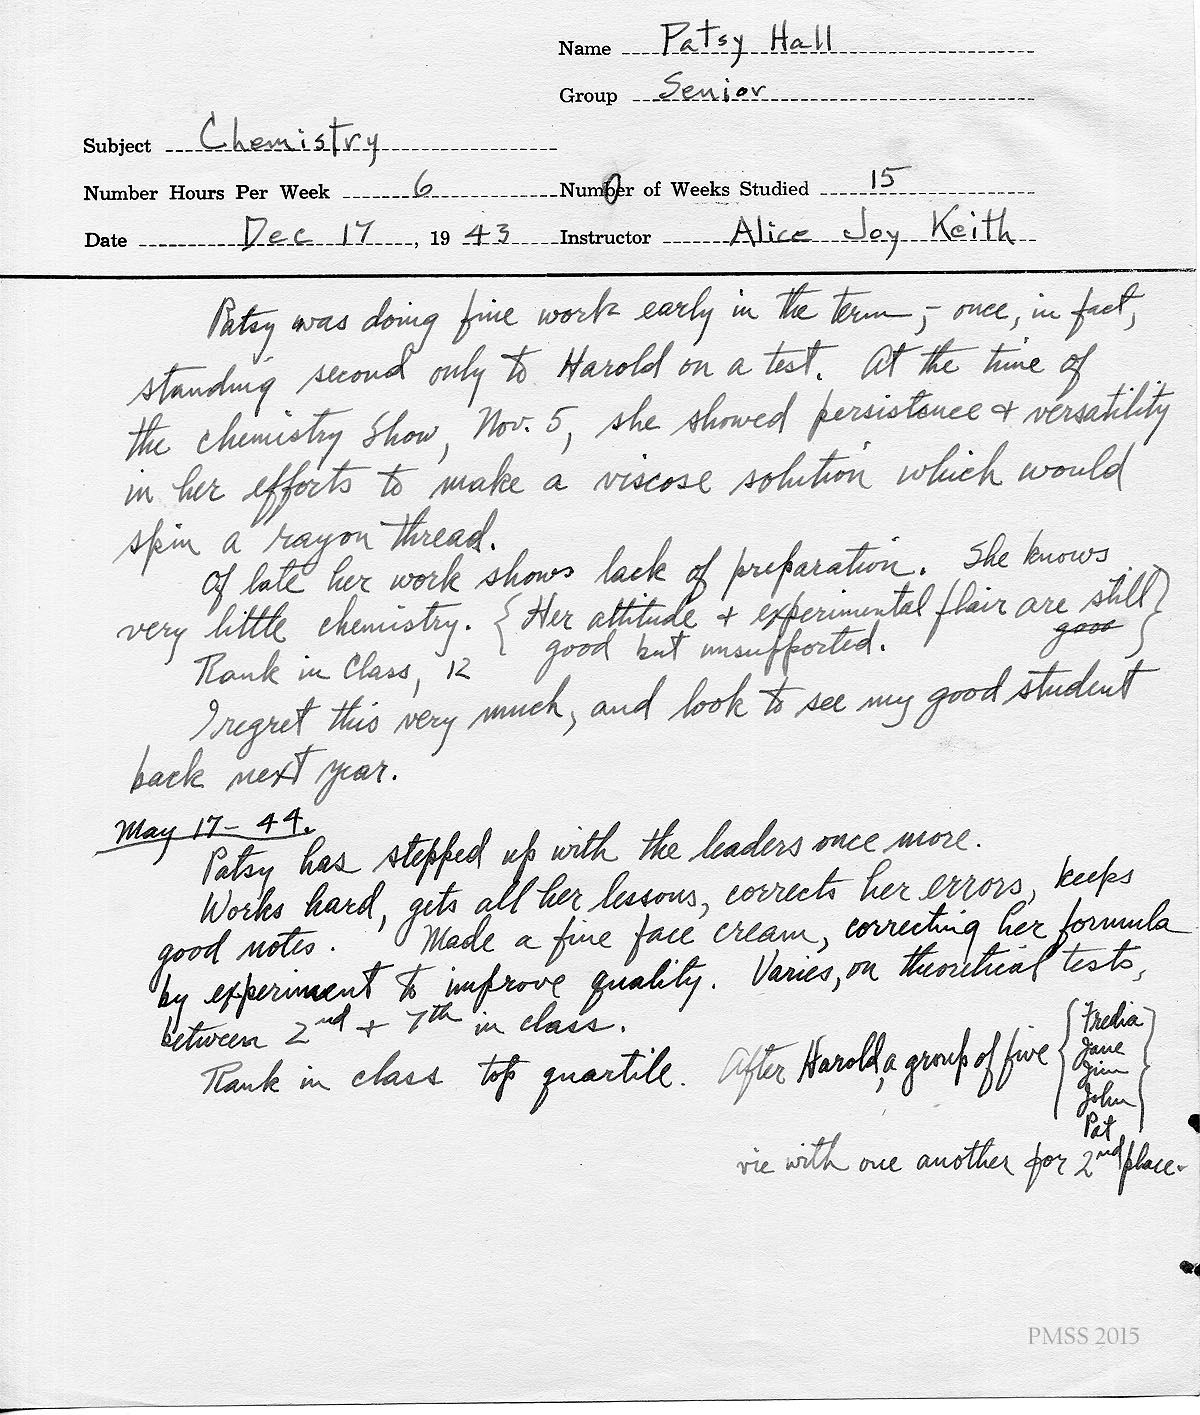 Name Patsy Hall
Group Senior
Subject Chemistry
Number Hours Per Week 6 Number of Weeks Studied 15
Date Dec 17, 1943 Instructor Alice Joy Keith
Patsy was doing fine work early in the term, - once, in fact,
standing second only to Harold on a test. At the time of
the chemistry Show, Nov. 5, she showed persistence + versatility
in her efforts to make a viscose solution which would
spin a rayon thread.
Of late her work shows lack of preparation. She knows
very little chemistry. { Her attitude + experimental flair are still
good
good but unsupported. }
Rank in Class, 12
I regret this very much, and look to see my good student
back next year.
May 17 - 44.
Patsy has stepped up with the leaders once more.
Works hard, gets all her lessons, corrects her errors, keeps
good notes. Made a fine face cream, correcting her formula
by experiment to improve quality. Varies, on theoretical tests,
between 2nd + 7th in class.
Rank in class top quartile. After Harold, a group of five { Fredia
Jane
Jim
John
Pat }
vie with one another for 2nd place.
PMSS 2015